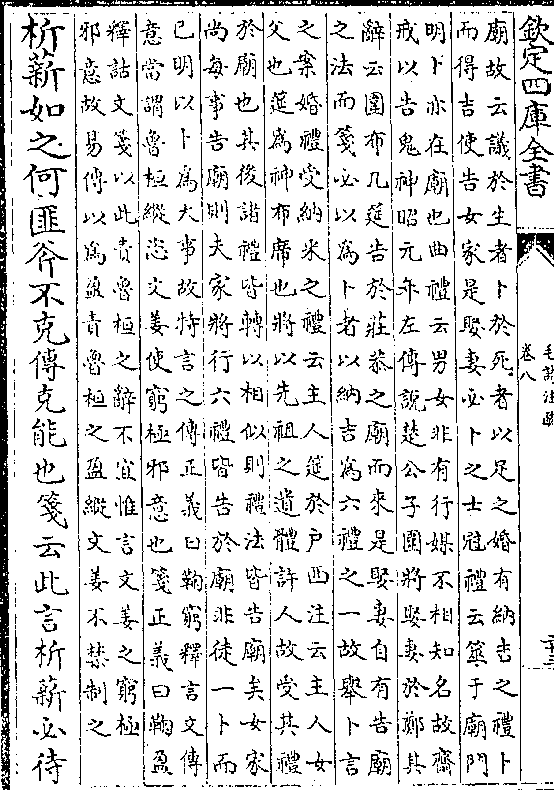 欽定四庫全書
毛詩注疏
卷八
廟故云議於生者卜於死者以足之婚有納吉之禮卜
而得吉使告女家是娶妻必卜之士冠禮云筮于廟門
明卜亦在廟也曲禮云男女非有行媒不相知名故齋
戒以告鬼神昭元年左傳說楚公子圍將娶妻於鄭其
辭云圍布几筵告於莊恭之廟而來是娶妻自有告廟
之法而箋必以為卜者以納吉為六禮之一故舉卜言
之案婚禮受納采之禮云主人筵於戶西注云主人女
父也筵為神布席也將以先祖之遺體許人故受其禮
於廟也其後諸禮皆轉以相似則禮法皆告廟矣女家
尚每事告廟則夫家將行六禮皆告於廟非徒一卜而
已明以卜為大事故特言之傳正義曰鞠窮釋言文傳
意當謂魯桓縱恣文姜使窮極邪意也箋正義曰鞠盈
釋詁文箋以此責魯桓之辭不宜惟言文姜之窮極
邪意故易傳以為盈責魯桓之盈縱文姜不禁制之
析薪如之何匪斧不克傳克能也箋云此言析薪必待